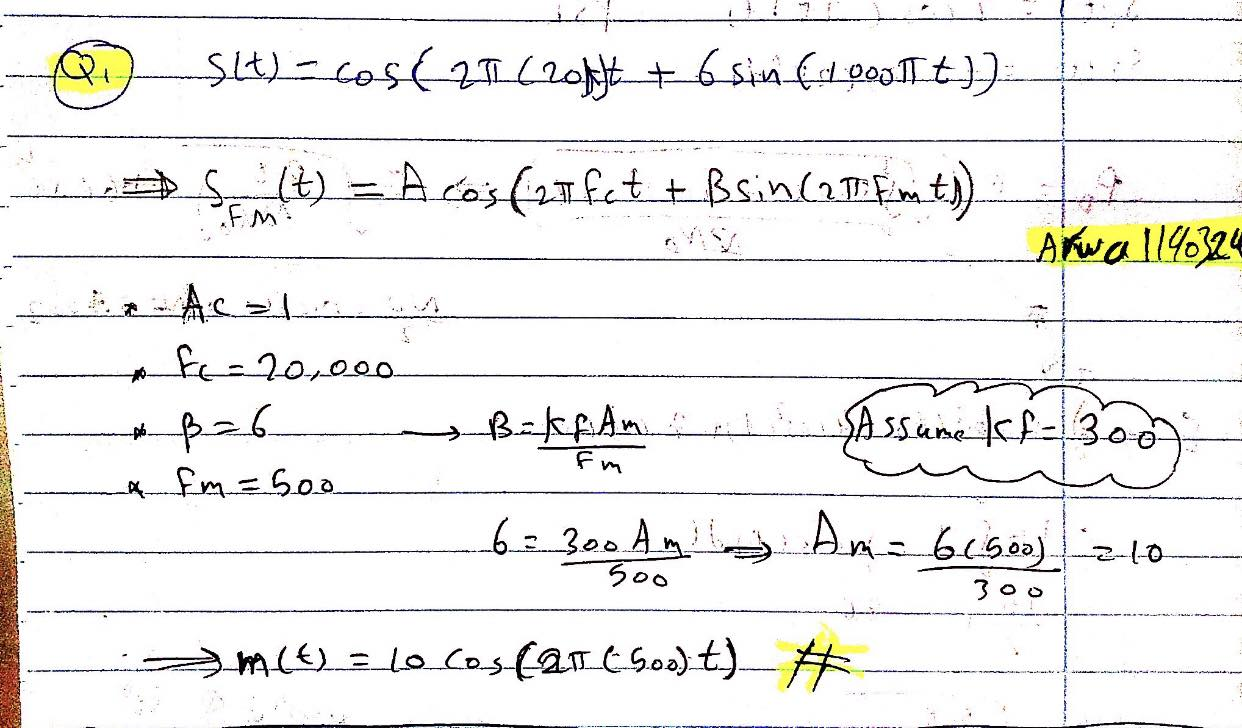 Q1 S(t) = cos( 2π (20k)t + 6 sin (1000π t))
⇒ S_FM (t) = A cos(2π fc t + B sin(2π Fm t))
Arwa 1140324
* Ac = 1
* Fc = 20,000
* β = 6 → B = Kf Am / Fm Assume Kf = 300
* Fm = 500
6 = 300 Am / 500 ⇒ Am = 6(500) / 300 = 10
⇒ m(t) = 10 cos(2π (500) t) #